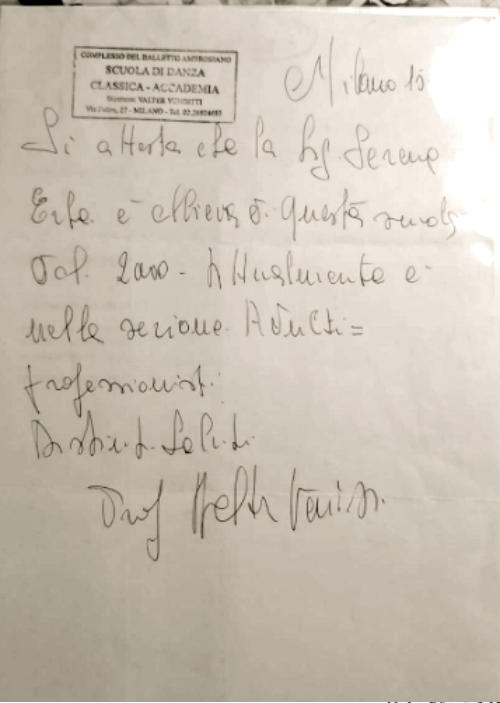 COMPLESSO DEL BALLETTO AMBROSIANO
SCUOLA DI DANZA
CLASSICA - ACCADEMIA
Direttore: VALTER VENDITTI
MILANO - Tel.
Milano
Si attesta che la Sig. Serena
Erba è allieva di questa scuola
dal 2000 - Attualmente è
nella sezione Adulti =
professionisti.
Distinti Saluti.
Prof Valter